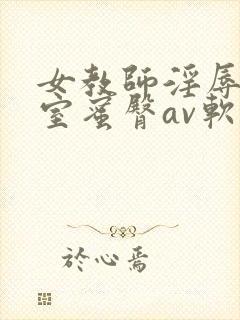 女教師淫辱
室蜜臀av軟
於心焉